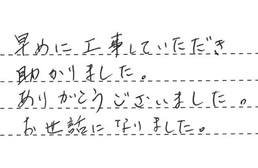 早めに工事していただき
助かりました。
ありがとうございました。
お世話になりました。